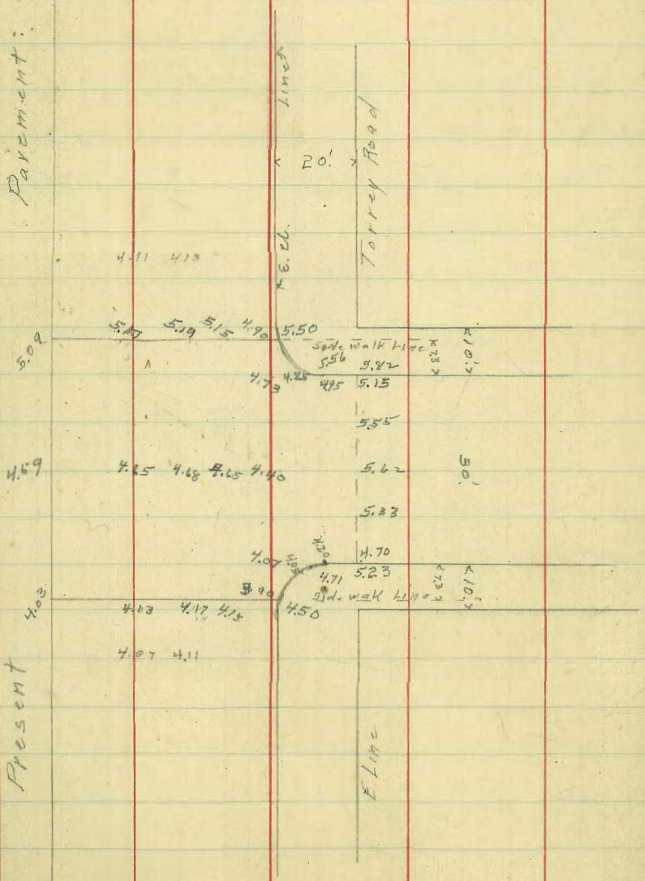 Pavement:
Line
20'
Torrey Road
E. cl.
4.11 4.13
5.09
5.19 5.15 4.90 5.50
Side walk Line
7.3
10.'
5.56 5.82
4.73 4.85 4.95 5.15
5.55
4.59
4.65 4.68 4.65 4.40 5.62
30'
5.33
4.07 4.70
4.71 5.23
7.3
10.'
3.90
Side walk Line
4.03
4.03 4.17 4.15 4.50
4.07 4.11
Present
E Line